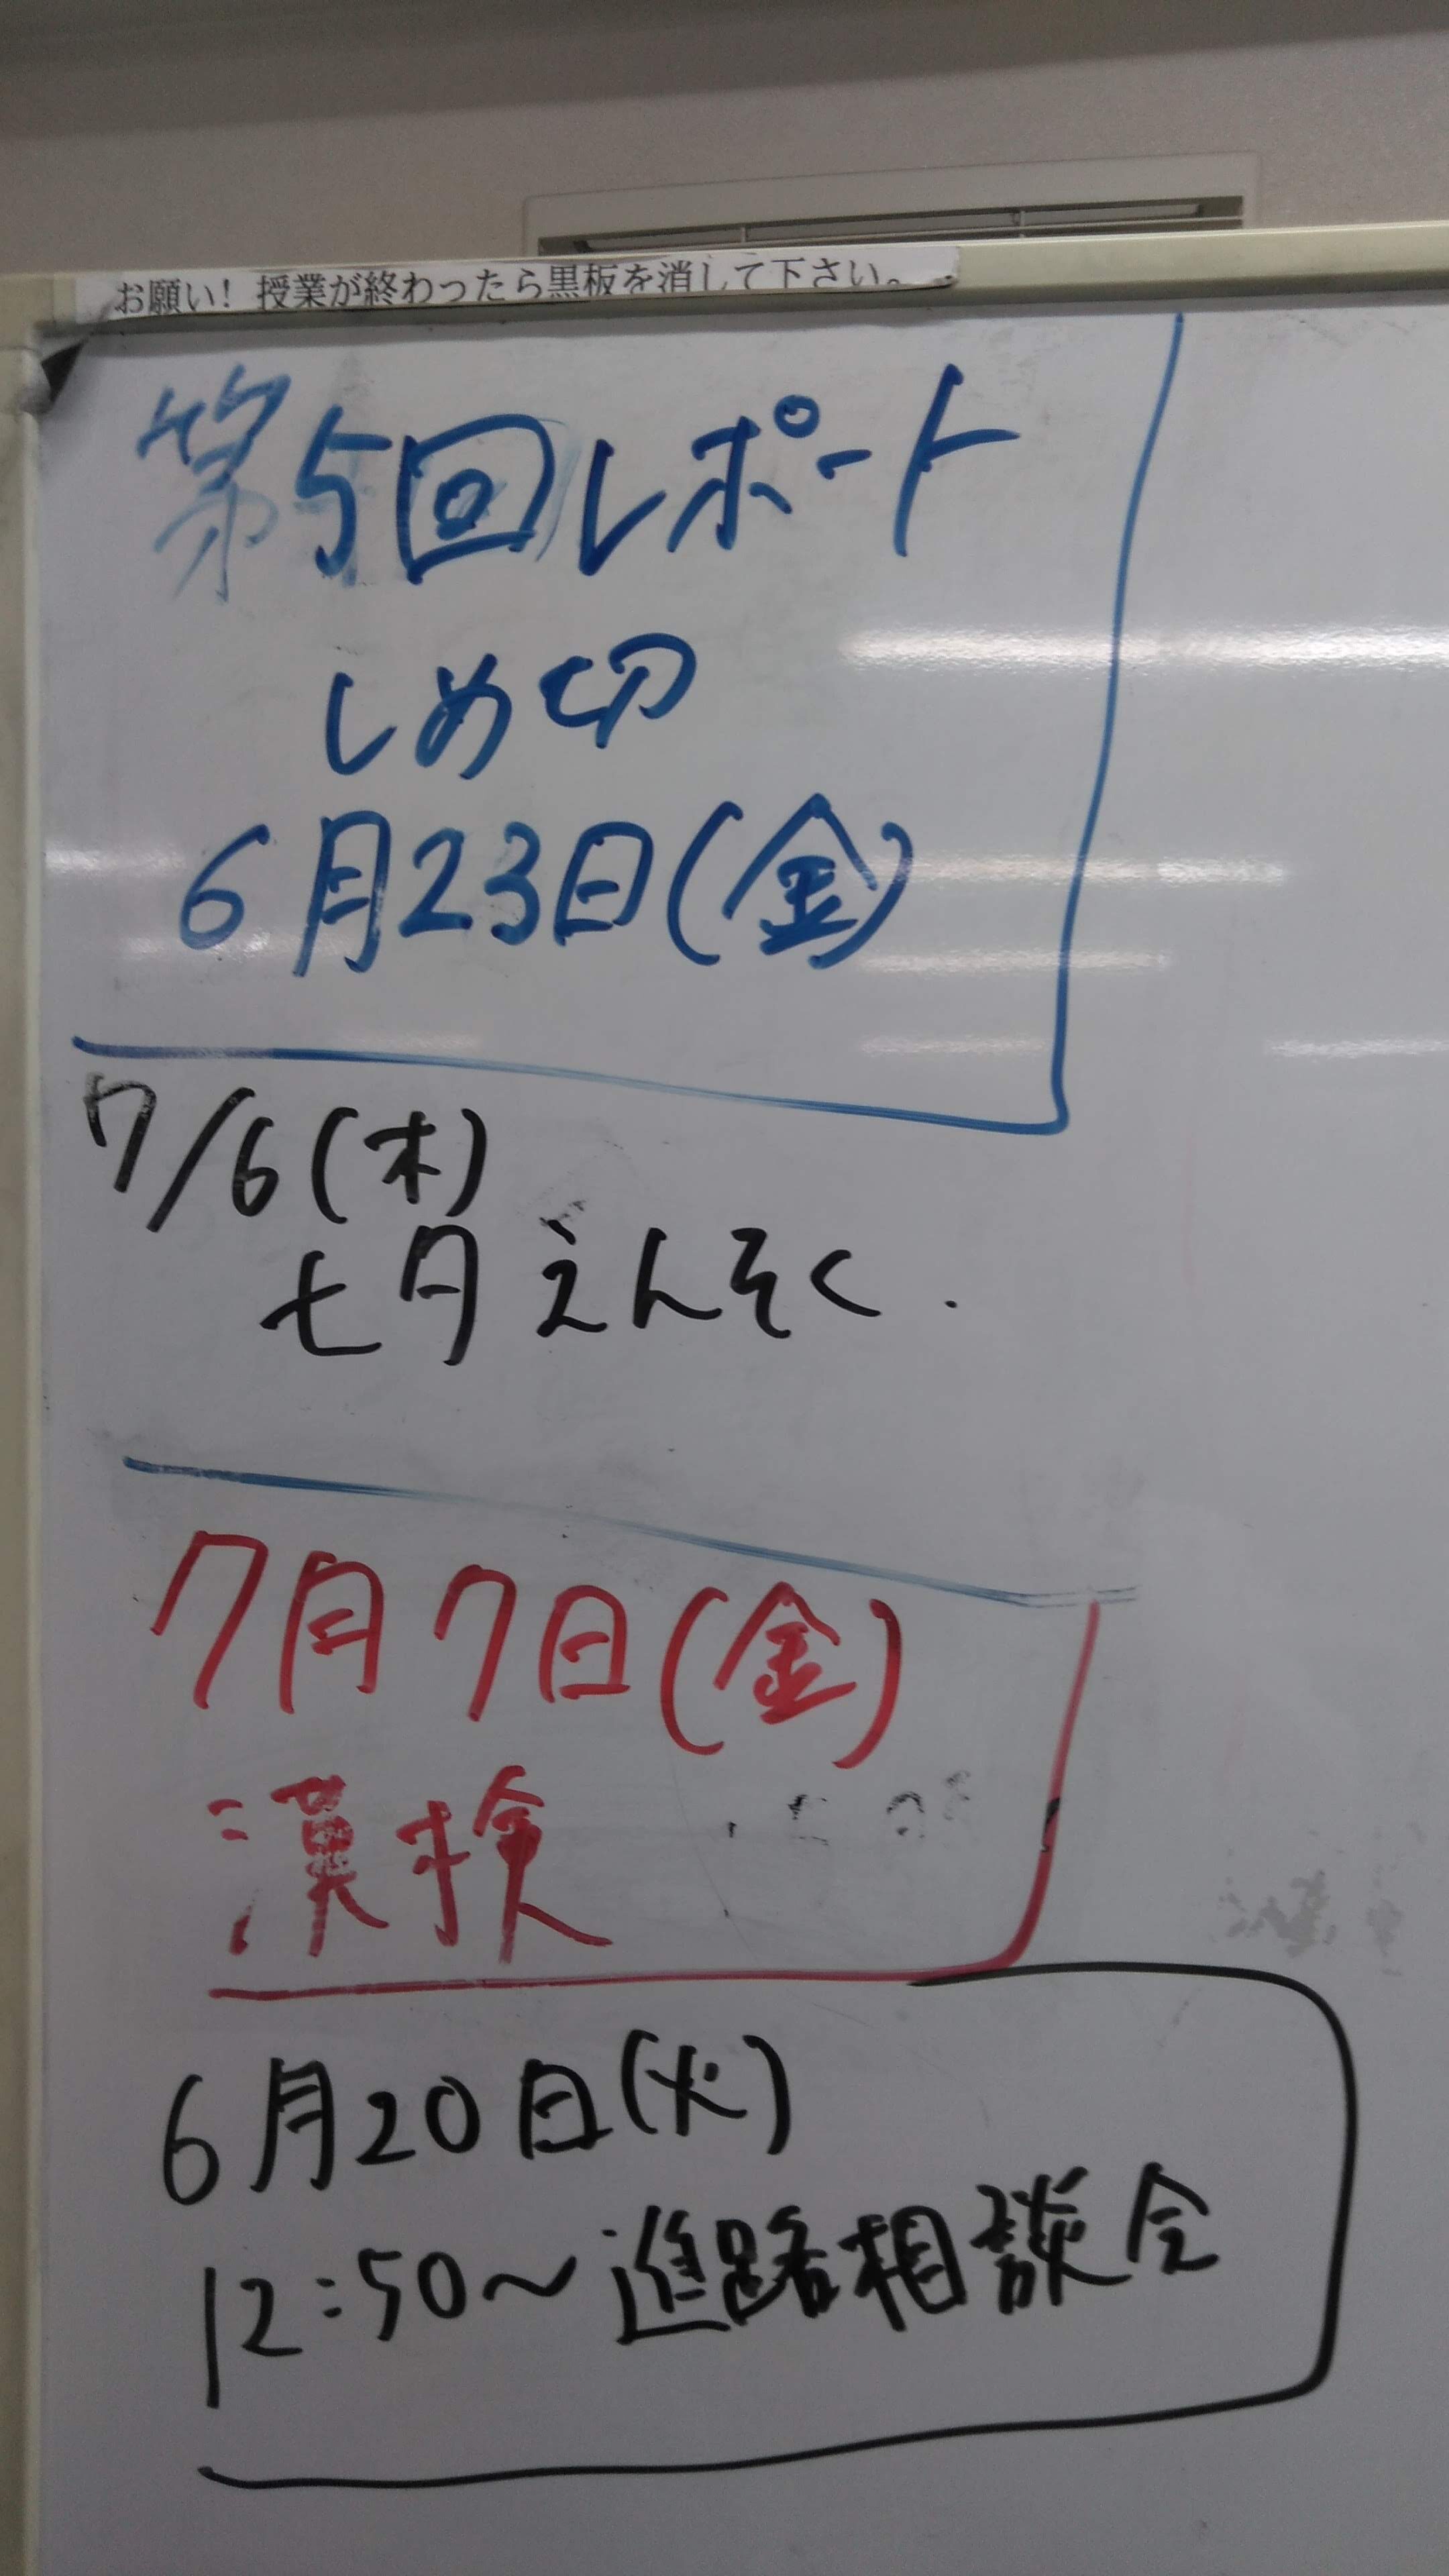 お願い! 授業が終わったら黒板を消して下さい。
第5回レポート
しめ切
6月23日(金)
7/6(木)
七月えんそく.
7月7日(金)
漢検
6月20日(火)
12:50~進路相談会